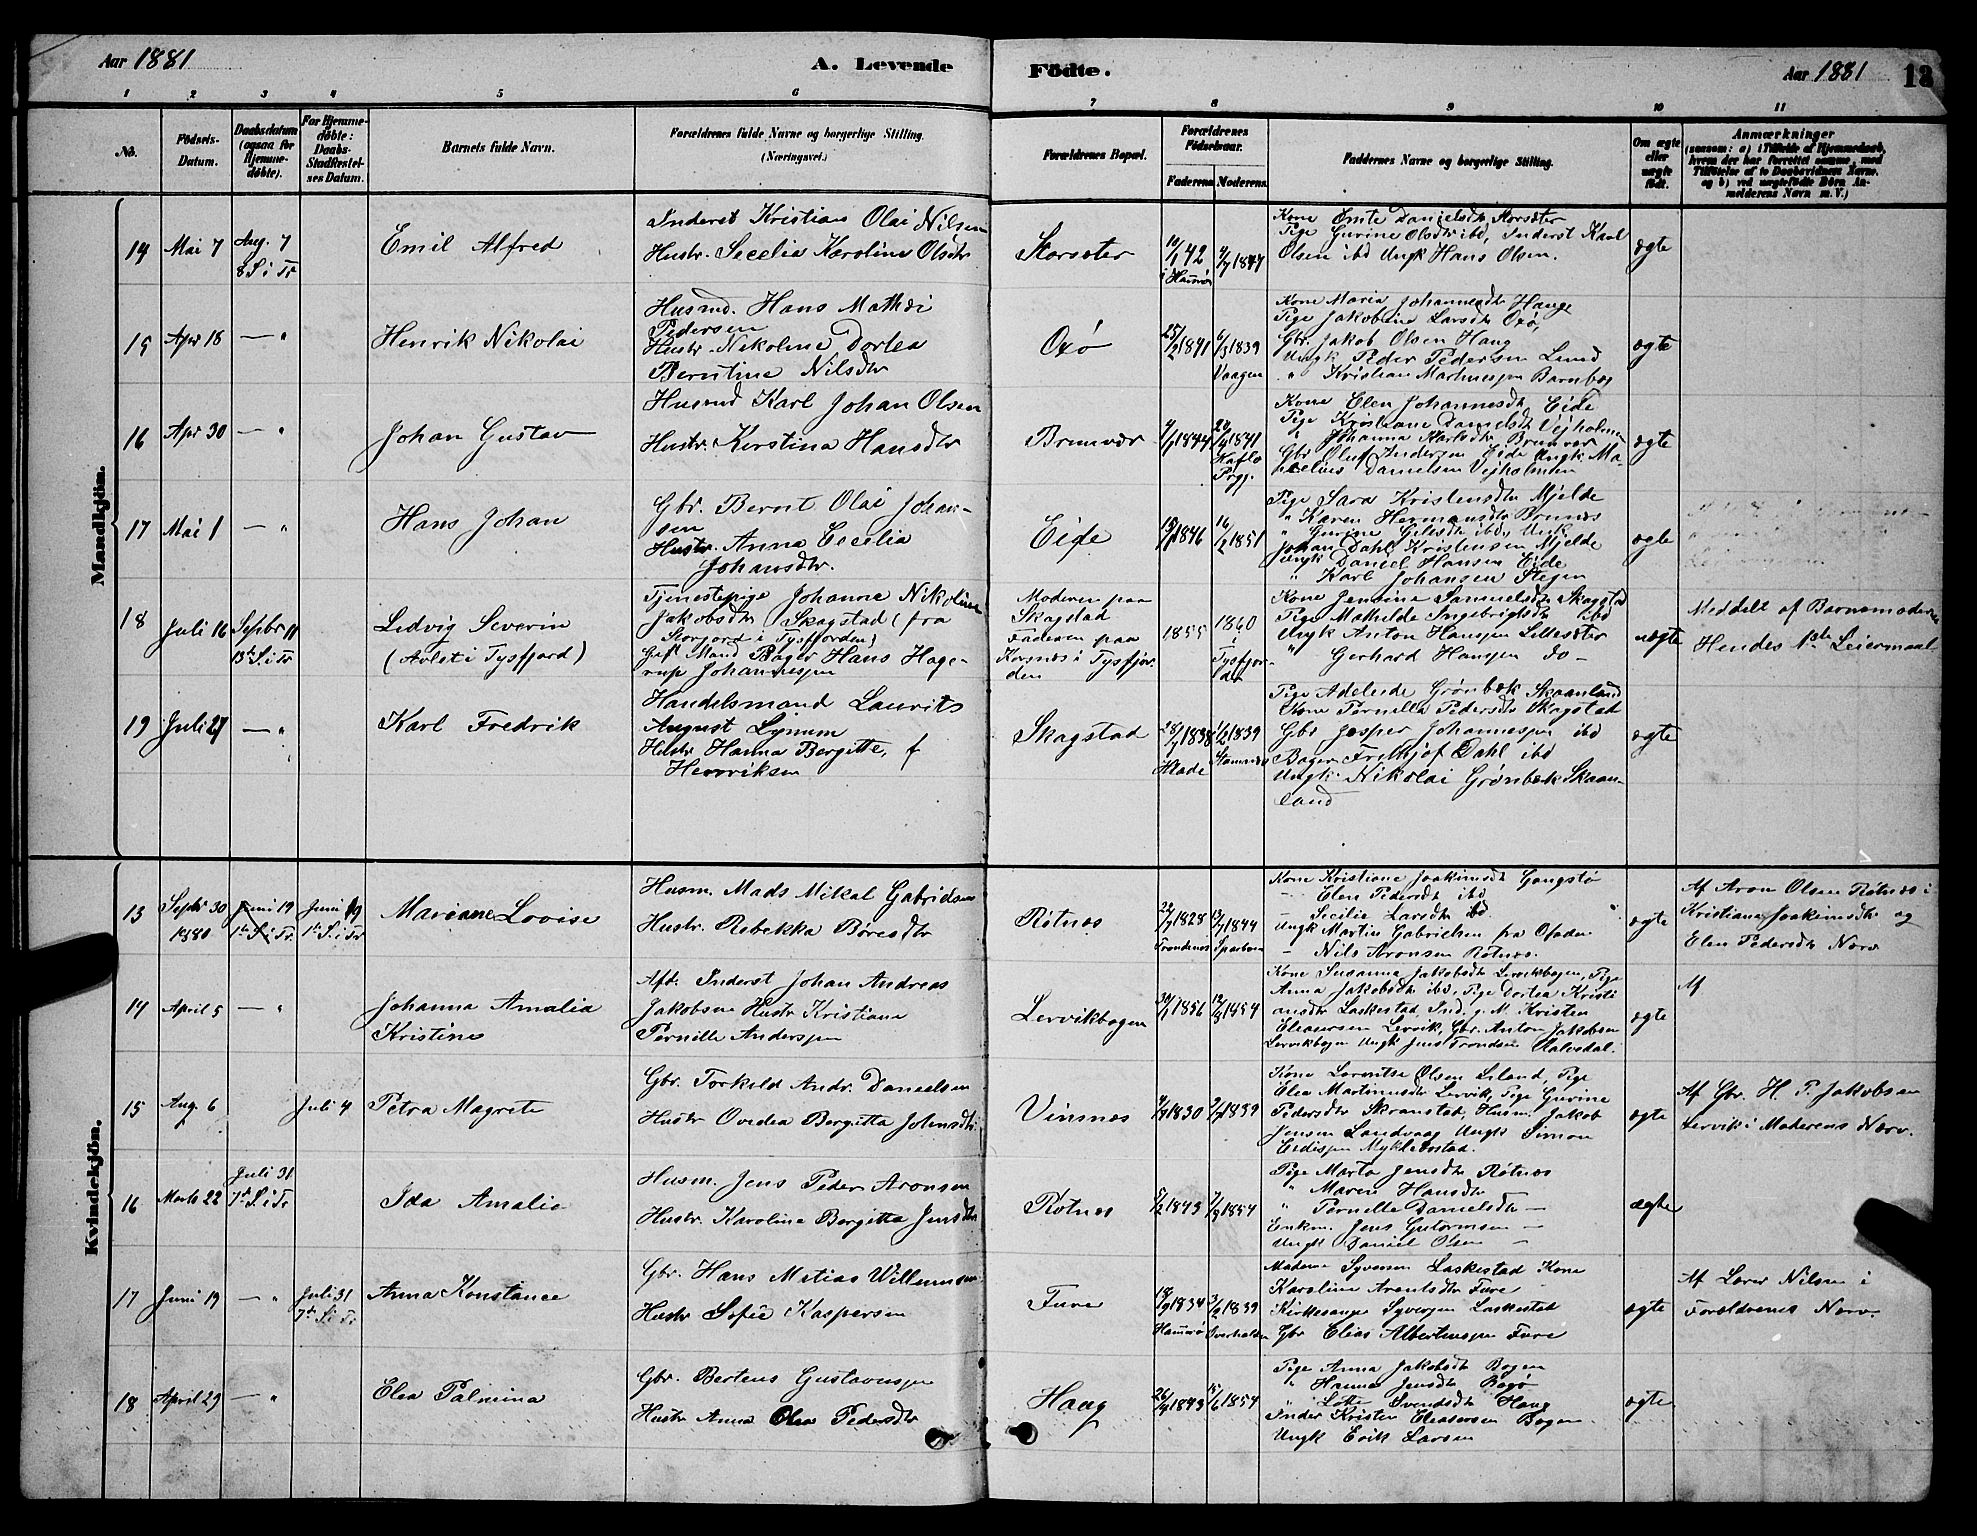 Aar 1881
A. Levende
Födte.
Aar 1881
13
1 2 3 4 5 6 7 8 9 10 11
No.
Födsels-
Datum.
Daabsdatum
(ogsaa for
Hjemme-
döbte).
For Hjemme-
döbte:
Daabs-
Stadfæstel-
ses Datum.
Barnets fulde Navn.
Forældrenes fulde Navne og borgerlige Stilling.
(Næringsvei.)
Forældrenes Bopæl.
Forældrenes
Födselsaar.
Faderens
Moderens
Faddernes Navne og borgerlige Stilling.
Om ægte
eller
uægte
födt.
Anmærkninger
(saasom: a) i Tilfælde af Hjemmedaab,
hvem der har forrettet samme, med
Tilföielse af to Daabsvidners Navne.
og b) ved uægtefödte Börn An-
melderens Navn m. V.)
Mandkjön.
14
Mai 7
Aug. 7
8 S i Tr
Emil Alfred
Inderst Kristian Olai Nilsen
Hustr. Secelia Karolina Olsdtr
Korsæter
42
1847
Kone Emte Danielsdtr Korsæter
Pige Gurine Olsdtr ibd, Inderst Karl
Olsen ibd Ungk Hans Olsen.
ægte
15
Apr 18
— "
Henrik Nikolai
Husmd. Hans Mathæi
Pedersen
Hustr. Nikoline Dortea
Berntine Nilsdtr
Oxö
25/2 1841
6/3 1839
Vaagen
Kone Maria Johannesdtr Hauge
Pige Jakobine Larsdtr Oxö,
Gbr. Jakob Olsen Haug
Ungk Peder Pedersen Lund
" Kristian
ægte
16
Apr 30
— "
Johan Gustav
Husmd Karl Johan Olsen
Hustr. Kerstina Hansdtr
Brunvær
1844
1841
Kone Elen Johannesdtr Eide
Pige Kristiane Danielsdtr Vejholmen
" Johanna Karlsdtr Brunvær
Gbr Oluf Andersen Eide Ungk Ma-
Danielsen Vejholmen
ægte
17
Mai 1
— "
Hans Johan
Gbr. Bernt Olai Johan-
sen
Hustr. Anna Cecelia
Johansdtr.
Eide
1846
16/2 1851
Pige Sara Kristensdtr Mjelde
" Karen Hermansdtr Brunæs
" Gurine ibd, Ungk
Johan Dahl Kristensen Mjelde
Ungk Daniel Hansen Eide
" Karl Johansen Stegen
ægte
18
Juli 16
Septbr 11
13de S. i Tr
Ludvig Severin
(Avlet i Tysfjord)
Tjenestepige Johanne Nikoline
Jakobsdtr Skagstad (fra
Storjord i Tysfjorden)
Gift Mand Bager Hans Hage-
rup Johannessen
Moderen paa
Skagstad
Faderen paa
Korsnæs i Tysfjor-
den
1855
1860
i
Tysfjor-
den
Kone Jensine Samuelsdtr Skagstad
Pige Mathilde Ingebrigtsdtr ibd
Ungk Anton Hansen Lillesæter
" Gerhard Hansen do —
uægte
Meddelt af Barnemoderen
Hendes 1ste Leiermaal
19
Juli 27
— "
Karl Fredrik
Handelsmand Laurits
August Lynum
Hustr Hanna Bergitte, f
Henriksen
Skagstad
28/7 1838
Hlade
1/2 1839
Kone Pernilla Pedersdtr Skagstad
Pige Adelude Grönbek Skaanland
Gbr Jesper Johannesen ibd
Bager Frithjof Dahl ibd
Ungk. Nikolai Grönbek Skaan-
land
ægte
Kvindekjön.
13
Septbr 30
1880
Juni 19
1ste S. i Tr.
Juni 19
1ste S. i Tr
Mariane Lovise
Husm. Mads Mikal Gabrielsen
Hustr. Rebekka Böresdtr
Rötnæs
1828
Trondenæs
1844
Kone Kristiane Joakimsdtr Gangstö
— Elen Pedersdtr ibd
— Secilie Larsdtr ibd.
Ungk Martin Gabrielsen fra Ofoden
— Nils Aronsen Rötnæs.
ægte
Af Aron Olsen Rötnæs i
Kristiane Joakimsdtr og
Elen Pedersdtr Nærv
14
April 5
— "
Johanna Amalia
Kristine
Aft. Inderst Johan Andreas
Jakobsen Hustr Kristiana
Pernille Andersen
Lervikbogen
1856
1854
Kone Susanna Jakobsdtr Lervikbogen, Pige
Anna Jakobsdtr ibd, Pige Dortea Kristi
ansdtr Laskestad, Ind. g. M. Kristen
Eleasersen Lervik, Gbr. Anton Jakobsen
Lervikbogen Ungk Jens Trondsen
ægte
Af
15
Aug. 6
Juli 4
Petra Magrete
Gbr. Torkild Andr. Danielsen
Hustr Ovedea Bergitta Johnsdtr
Vinsnæs
1830
1839
Kone Lorentse Olsen Leland, Pige
Elea Martinusdtr Lervik, Pige Gurine
Pedersdtr Skranstad, Husm. Jakob
Jensen Landvaag Ungk Simon
Mykle
ægte
Af Gbr. H. P. Jakobsen
Lervik i Moderens Nærv.
16
Marts 22
Juli 31
7de S. i Tr
Ida Amalia
Husm. Jens Peder Aronsen
Hustr. Karolina Bergitta Jensdtr
Rötnæs
1843
1854
Pige Marta Jensdtr Rötnæs
" Maren Hansdtr
" Pernille Danielsdtr —
Enkm. Jens Gutormsen —
Ungk Daniel Olsen —
ægte
17
Juni 19
— "
Juli 31
7de S i Tr
Anna Konstance
Gbr. Hans Matias Willumsen
Hustr Sofie Kaspersen
Fure
18/9 1834
Hamerö
1839
Overhalden
Madame Syversen Laskestad Kone
Karoline Arentsdtr Fure
Kirkesanger Syversen Laskestad
Gbr Elias Albertsen Fure
ægte
Af Lærer Nilsen i
Forældrenes Nærv.
18
April 29
— "
Elea Palmina
Gbr. Bertens Gustavsen
Hustr Anna Olea Pedersdtr
Haug
1843
1854
Pige Anna Jakobsdtr Bogen
" Hanna Jensdtr Bogö
" Svendsdtr Haug
Inder Kristen Eleasersen Bogen
Ungk Erik Larsen
ægte